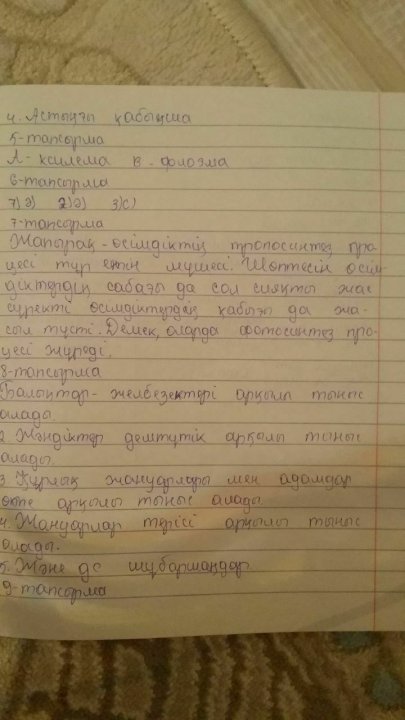 4. Астыңғы қабықша
5-тапсырма
А- ксилема в- флоэма
6-тапсырма
1) а) 2) а) 3) с)
7-тапсырма
Жапырақ - өсімдіктің тропосинтез про-
цесі тур етін мүшесі. Шөптесін өсім
діктердің сабағы да сол сияқты жас
сүректі өсімдіктердің қабығы да жа-
сыл түсті. Демек, оларда фотосинтез про-
цесі жүреді.
8-тапсырма
Балықтар- желбезектері арқылы тыныс
алады
2. Жәндіктер демтүтік арқылы тыныс
алады.
3 Құрлық жануарлары мен адамдар
өкпе арқылы тыныс алады
4. Жануарлар терісі арқылы тыныс
алады.
5. Және де шұбаршаңдар
9-тапсырма